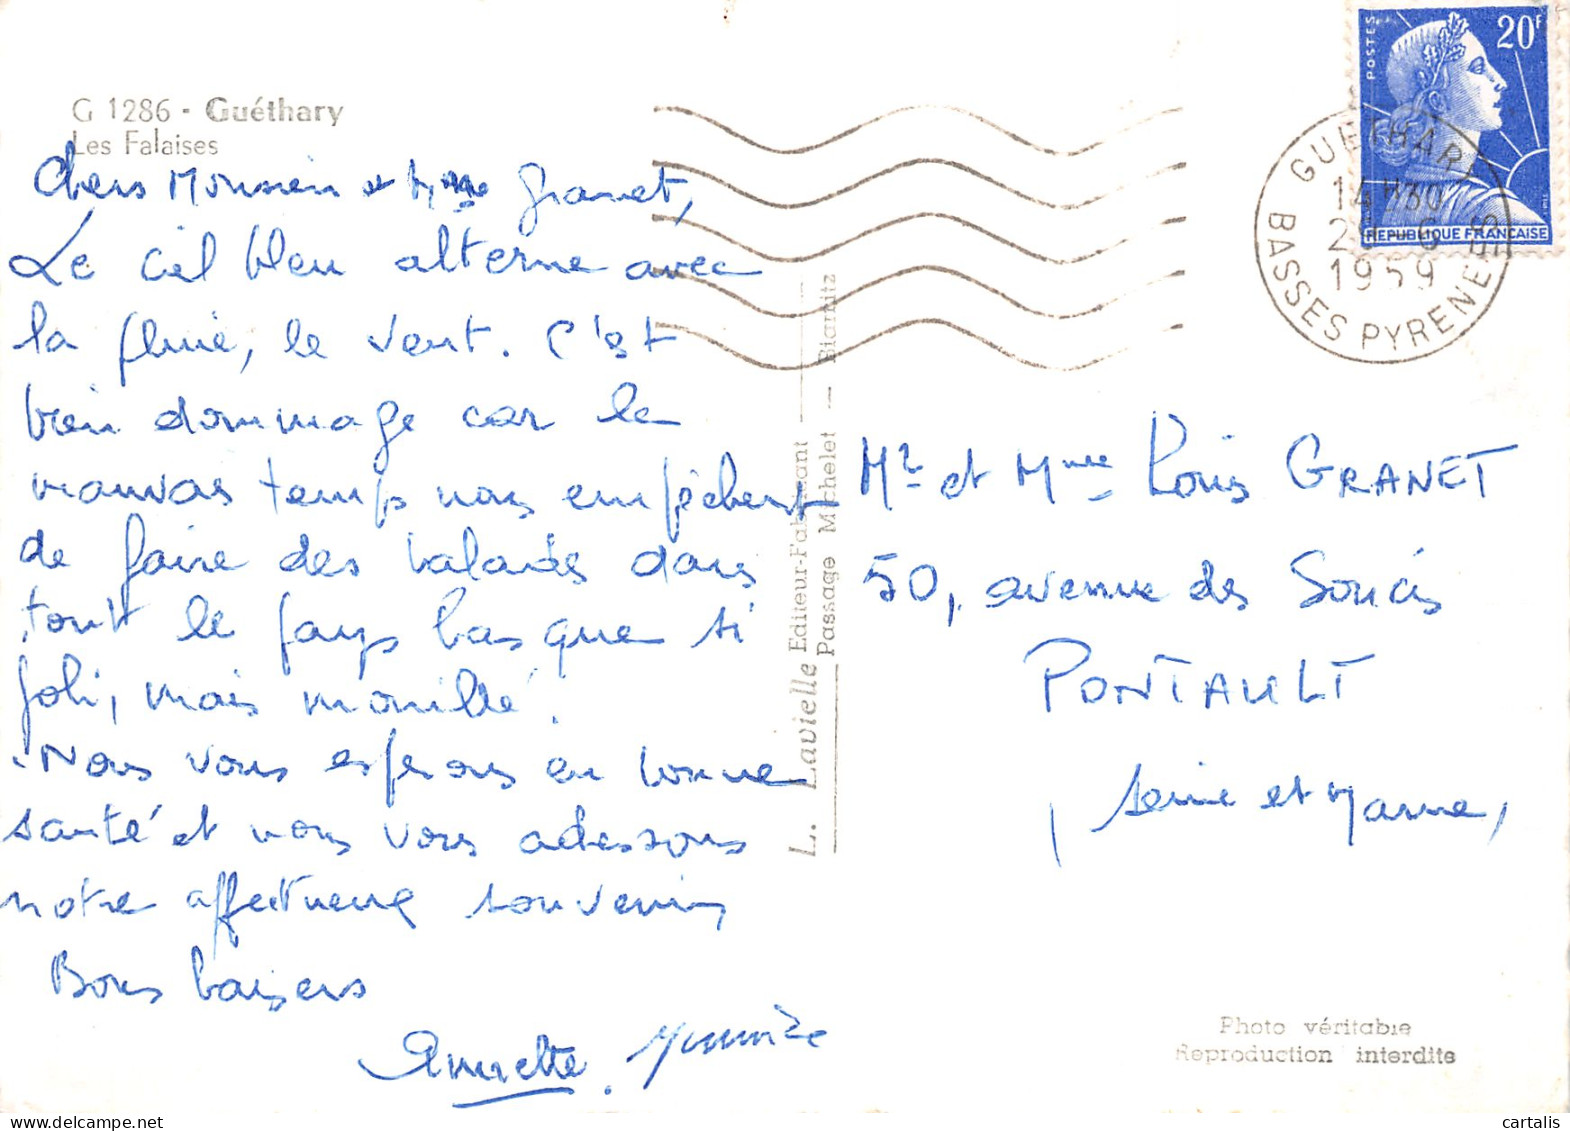 G 1286 - Guéthary
Les Falaises
Chers Monsieur et Mme Granet,
Le ciel bleu alterne avec
la pluie, le vent. C'est
bien dommage car le
mauvais temps nous empêchent
de faire des balades dans
tout le pays basque si
joli, mais mouillé.
Nous vous espérons en bonne
santé et nous vous adressons
notre affectueux souvenir,
Bons baisers
Annette.
L. Lavielle Editeur-Fabricant
Passage Michelet — Biarritz
POSTES
20F
REPUBLIQUE FRANCAISE
GUETHARY
14H30
-6
1959
BASSES PYRENEES
Mr et Mme Louis GRANET
50, avenue des Soucis
PONTAULT
(Seine et Marne)
Photo véritable
Reproduction interdite
cartalis